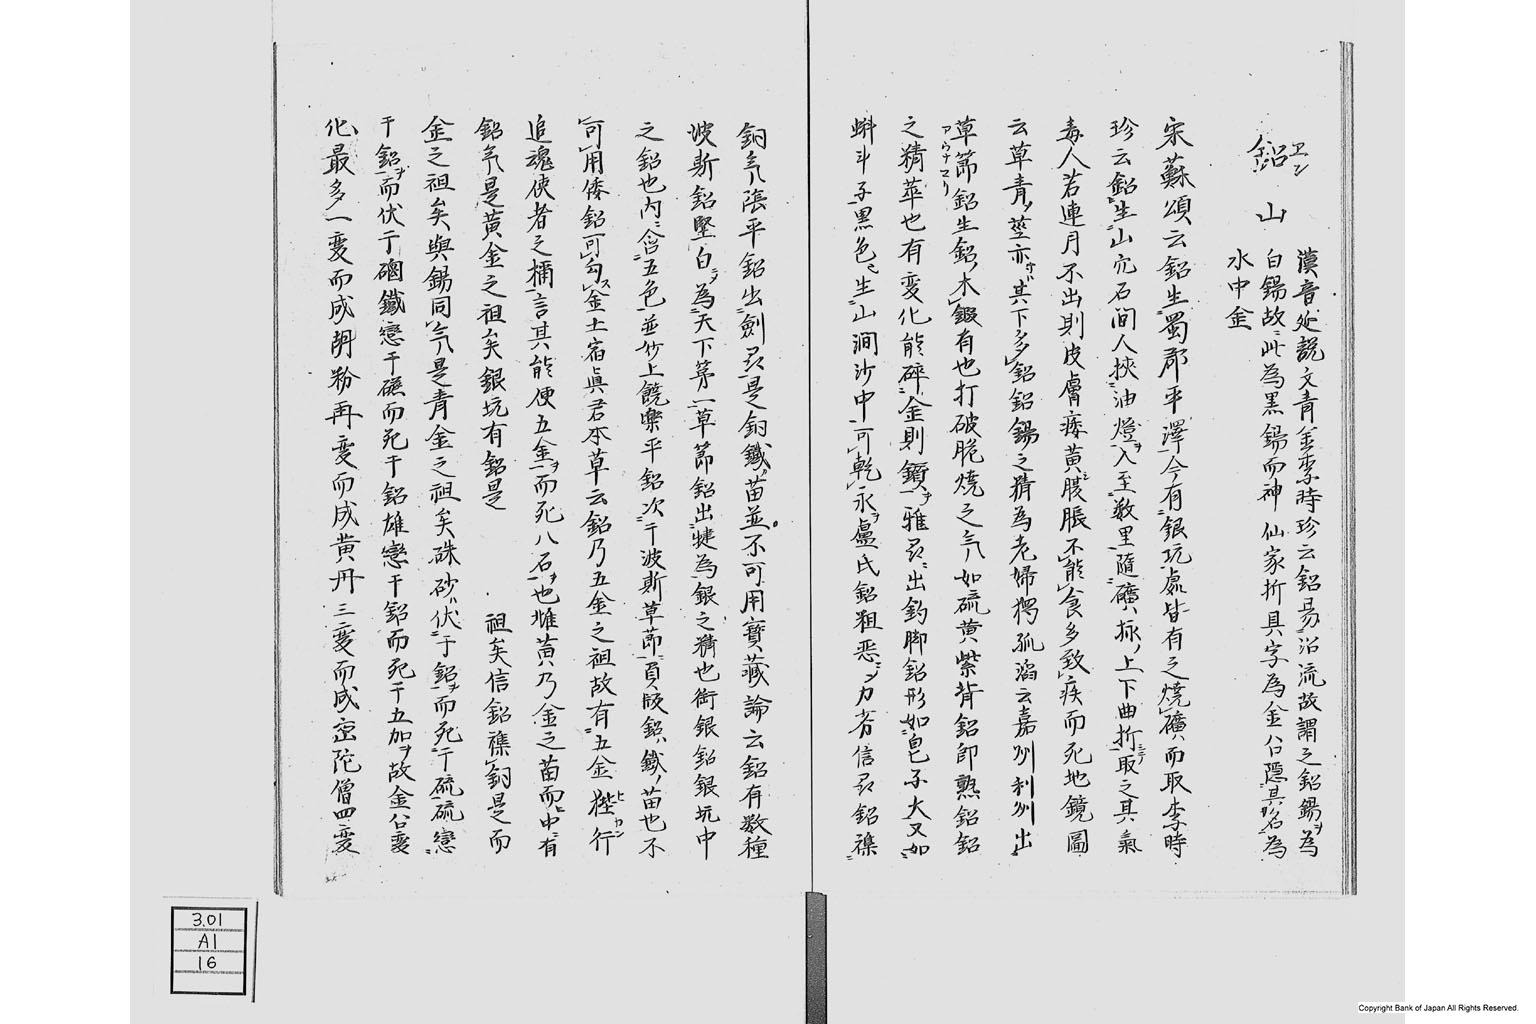 鉛 山
エン
漢音延說文青金李時珍云鉛易沿流故謂之鉛錫ヲ為
白錫故ニ此為黒錫而神仙家折其字為金公隠其名為
水中金
宋蘇頌云鉛生蜀郡平澤今有銀坑處皆有之燒礦而取李時
珍云鉛生山穴石間人挾油燈ヲ入至数里隨礦脉上下曲折取之其氣
毒人若連月不出則皮膚痿黄腹脹不能食多致疾而死地鏡圖
云草青莖赤其下多鉛鉛錫之精為老婦獨孤滔云嘉州利州出
草節鉛生鉛未鍛有也打破脆燒之气如硫黄紫背鉛即熟鉛鉛
アラナマリ
之精華也有変化能碎金剛鑽ヲ雅州出釣脚鉛形如皂子大又如
蝌斗子黒色生山澗沙中可乾永ヲ盧氏鉛粗悪シ力劣信州鉛襍
銅气陰平鉛出劍州是銅鐵苗並不可用寳藏論云鉛有数種
波斯鉛堅白シ為天下第一草節鉛出犍為銀之精也銜銀鉛銀坑中
之鉛也内ニ含五色並妙上饒樂平鉛次于波斯草節負版鉛鐵ノ苗也不
可用倭鉛可勾金土宿眞君本草云鉛乃五金之祖故有五金狴犴
追魂使者之稱言其能便五金ヲ而死八石ヲ也雌黄乃金之苗而中有
鉛气是黄金之祖矣銀坑有鉛是
祖矣信鉛襍銅是而
金之祖矣與錫同气是青金之祖矣硃砂伏于鉛ヲ而死于硫硫戀
于鉛ヲ而伏于硇鐵戀于磁而死于鉛雄戀于鉛而死于五加ヲ故金公変
化最多一変而成胡粉再変而成黄丹三変而成密陀僧四変
3.01
A1
16
Copyright Bank of Japan All Rights Reserved.